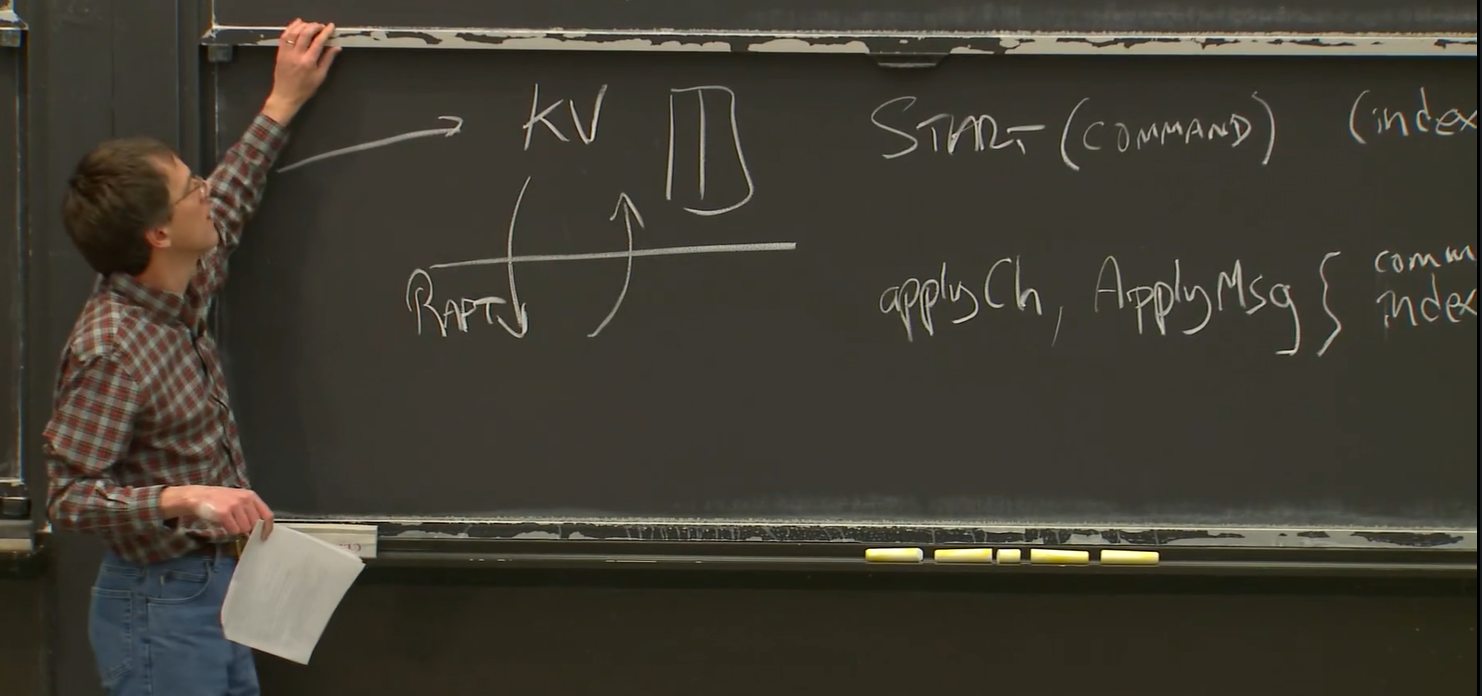 KV
START (COMMAND) (index
RAFT
applyCh, ApplyMsg { comm
index